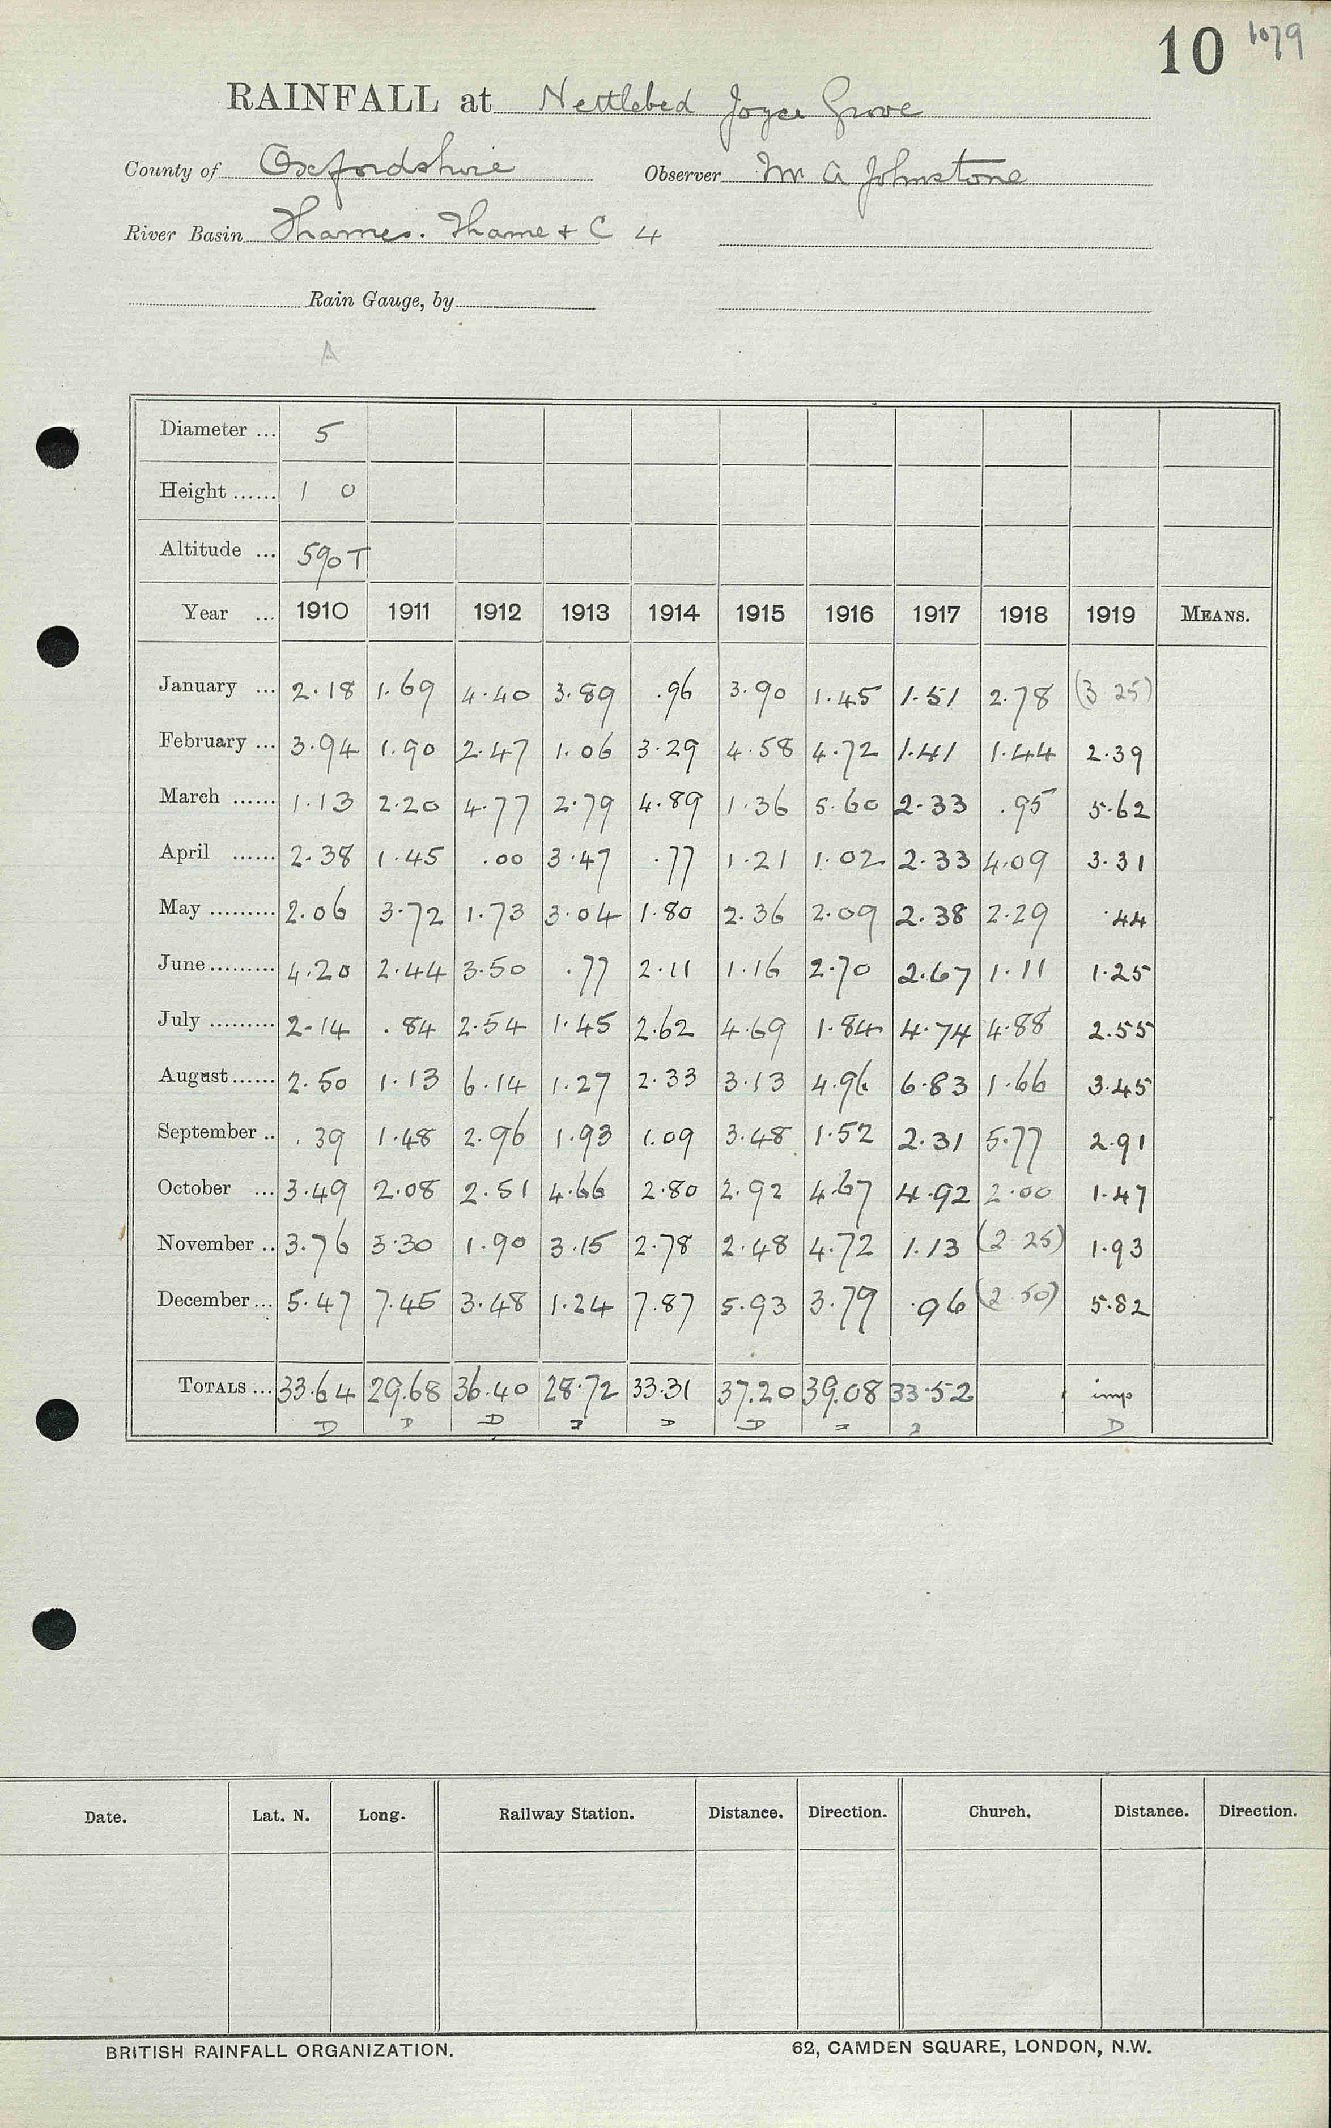 10 1079
RAINFALL at Nettlebed Joyce Grove
County of Oxfordshire Observer Mr A Johnstone
River Basin Thames. Thame + C 4
Rain Gauge, by
A
Diameter ... 5
Height ...... 1 0
Altitude ... 590 T
Year ... 1910 1911 1912 1913 1914 1915 1916 1917 1918 1919 MEANS.
January ... 2.18 1.69 4.40 3.89 .96 3.90 1.45 1.51 2.78 (3 25)
February ... 3.94 1.90 2.47 1.06 3.29 4.58 4.72 1.41 1.44 2.39
March ...... 1.13 2.20 4.77 2.79 4.89 1.36 5.60 2.33 .95 5.62
April ...... 2.38 1.45 .00 3.47 .77 1.21 1.02 2.33 4.09 3.31
May ......... 2.06 3.72 1.73 3.04 1.80 2.36 2.09 2.38 2.29 .44
June ......... 4.20 2.44 3.50 .77 2.11 1.16 2.70 2.67 1.11 1.25
July ......... 2.14 .84 2.54 1.45 2.62 4.69 1.84 4.74 4.88 2.55
August ...... 2.50 1.13 6.14 1.27 2.33 3.13 4.96 6.83 1.66 3.45
September .. .39 1.48 2.96 1.93 1.09 3.48 1.52 2.31 5.77 2.91
October ... 3.49 2.08 2.51 4.66 2.80 2.92 4.67 4.92 2.00 1.47
November .. 3.76 3.30 1.90 3.15 2.78 2.48 4.72 1.13 (2 25) 1.93
December ... 5.47 7.45 3.48 1.24 7.87 5.93 3.79 .96 (2 50) 5.82
TOTALS ... 33.64 29.68 36.40 28.72 33.31 37.20 39.08 33.52 imp
D D D D D D
Date. Lat. N. Long. Railway Station. Distance. Direction. Church. Distance. Direction.
BRITISH RAINFALL ORGANIZATION. 62, CAMDEN SQUARE, LONDON, N.W.